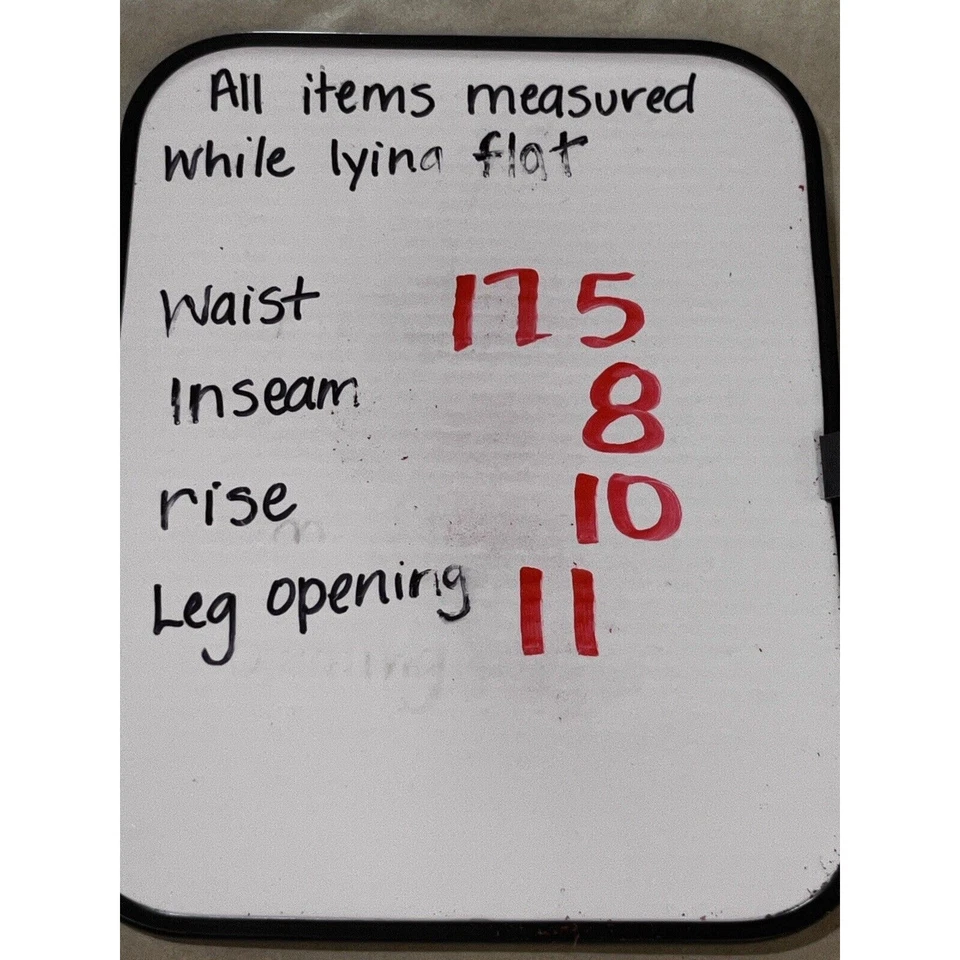 All items measured
while lying flat
Waist 17 5
Inseam 8
rise 10
Leg opening 11